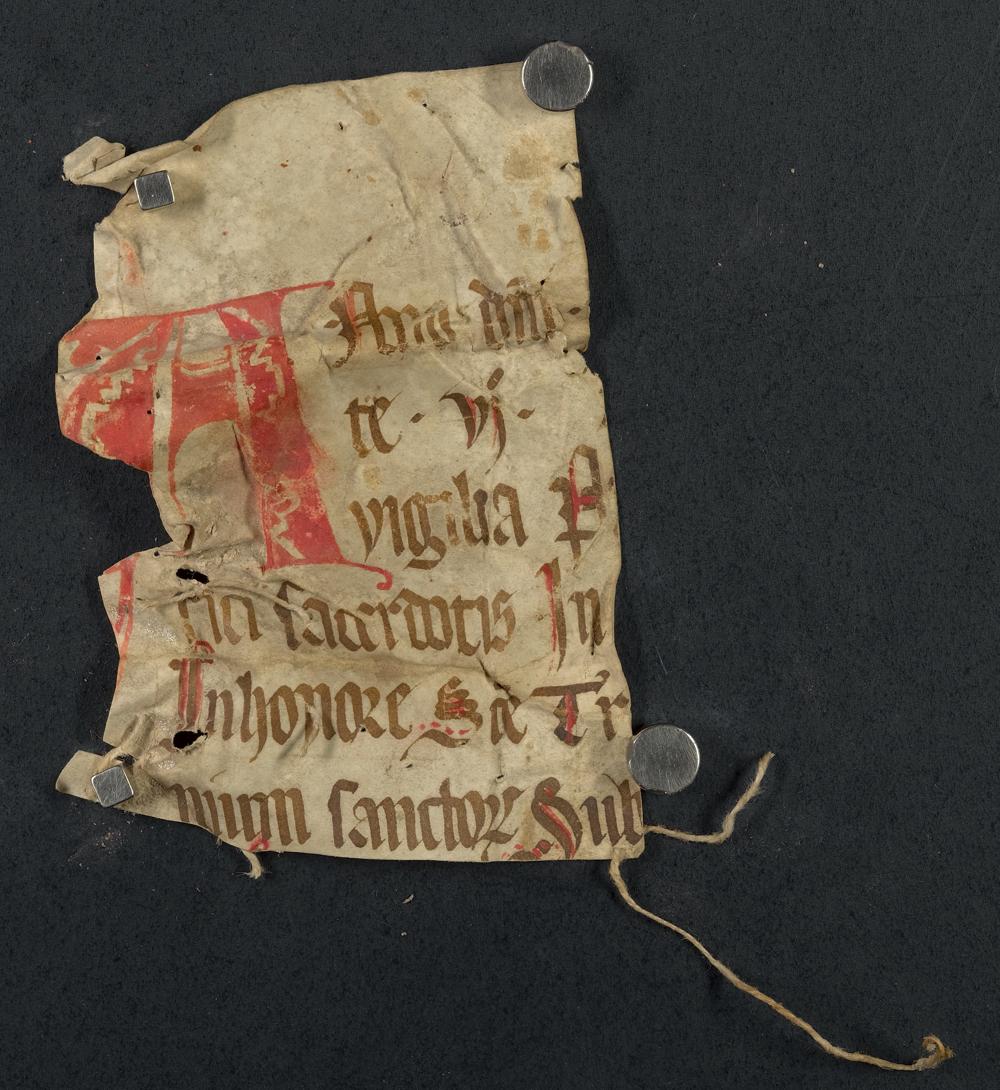 Anno dni
te · vj ·
vigilia P
rici sacerdotis In
In honore Sce Tr
nium sanctoꝝ Sub